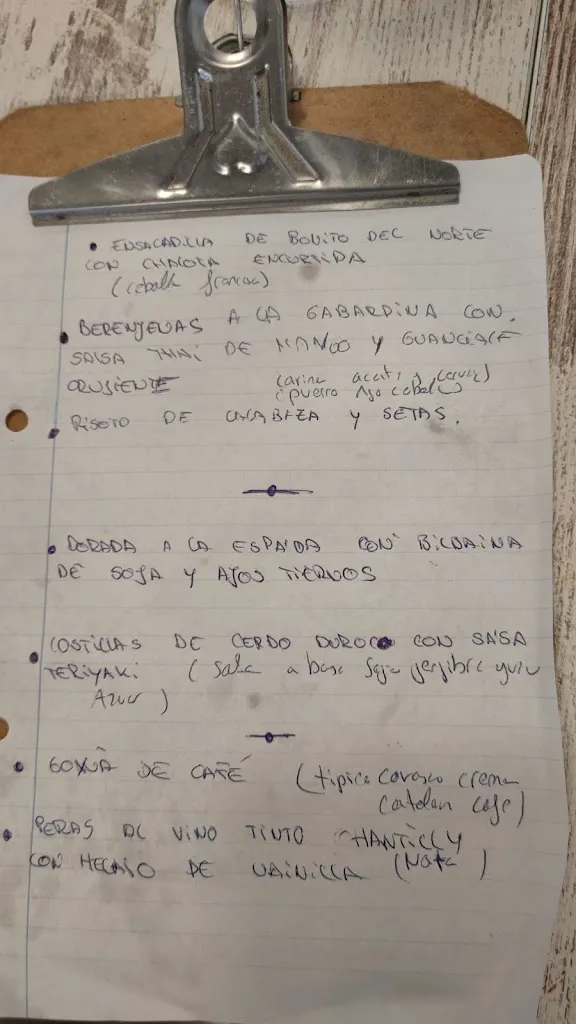 • ENSACADILLA DE BONITO DEL NORTE
CON CHALOTA ENCURTIDA
(cebolla francesa)
• BERENJENAS A LA GABARDINA CON
SALSA THAI DE MANGO Y GUANCIALE
CRUSIENTE (arina aceite y cerveza)
puerro Ajo cebolla
• RISOTO DE CALABAZA Y SETAS.
• DORADA A LA ESPALDA CON BILBAINA
DE SOJA Y AJOS TIERNOS
• COSTILLAS DE CERDO DUROC CON SALSA
TERIYAKI (Salsa a base Soja jengibre
Azucar)
• GOXUA DE CAFÉ (tipico vasco crema
catalan cafe)
• PERAS AL VINO TINTO CHANTILLY
CON HELADO DE VAINILLA (Nata)